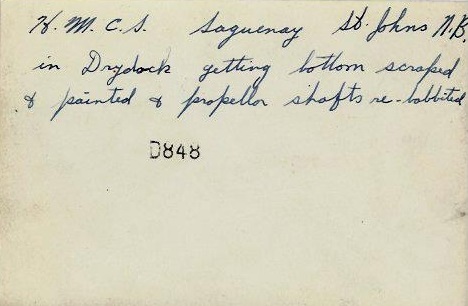 H. M. C. S. Saguenay St. Johns N.B.
in Drydock getting bottom scraped
& painted & propellor shafts re-babbited
D848